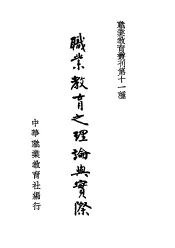 職業教育叢刊第十一種
職業教育之理論與實際
中華職業教育社編行